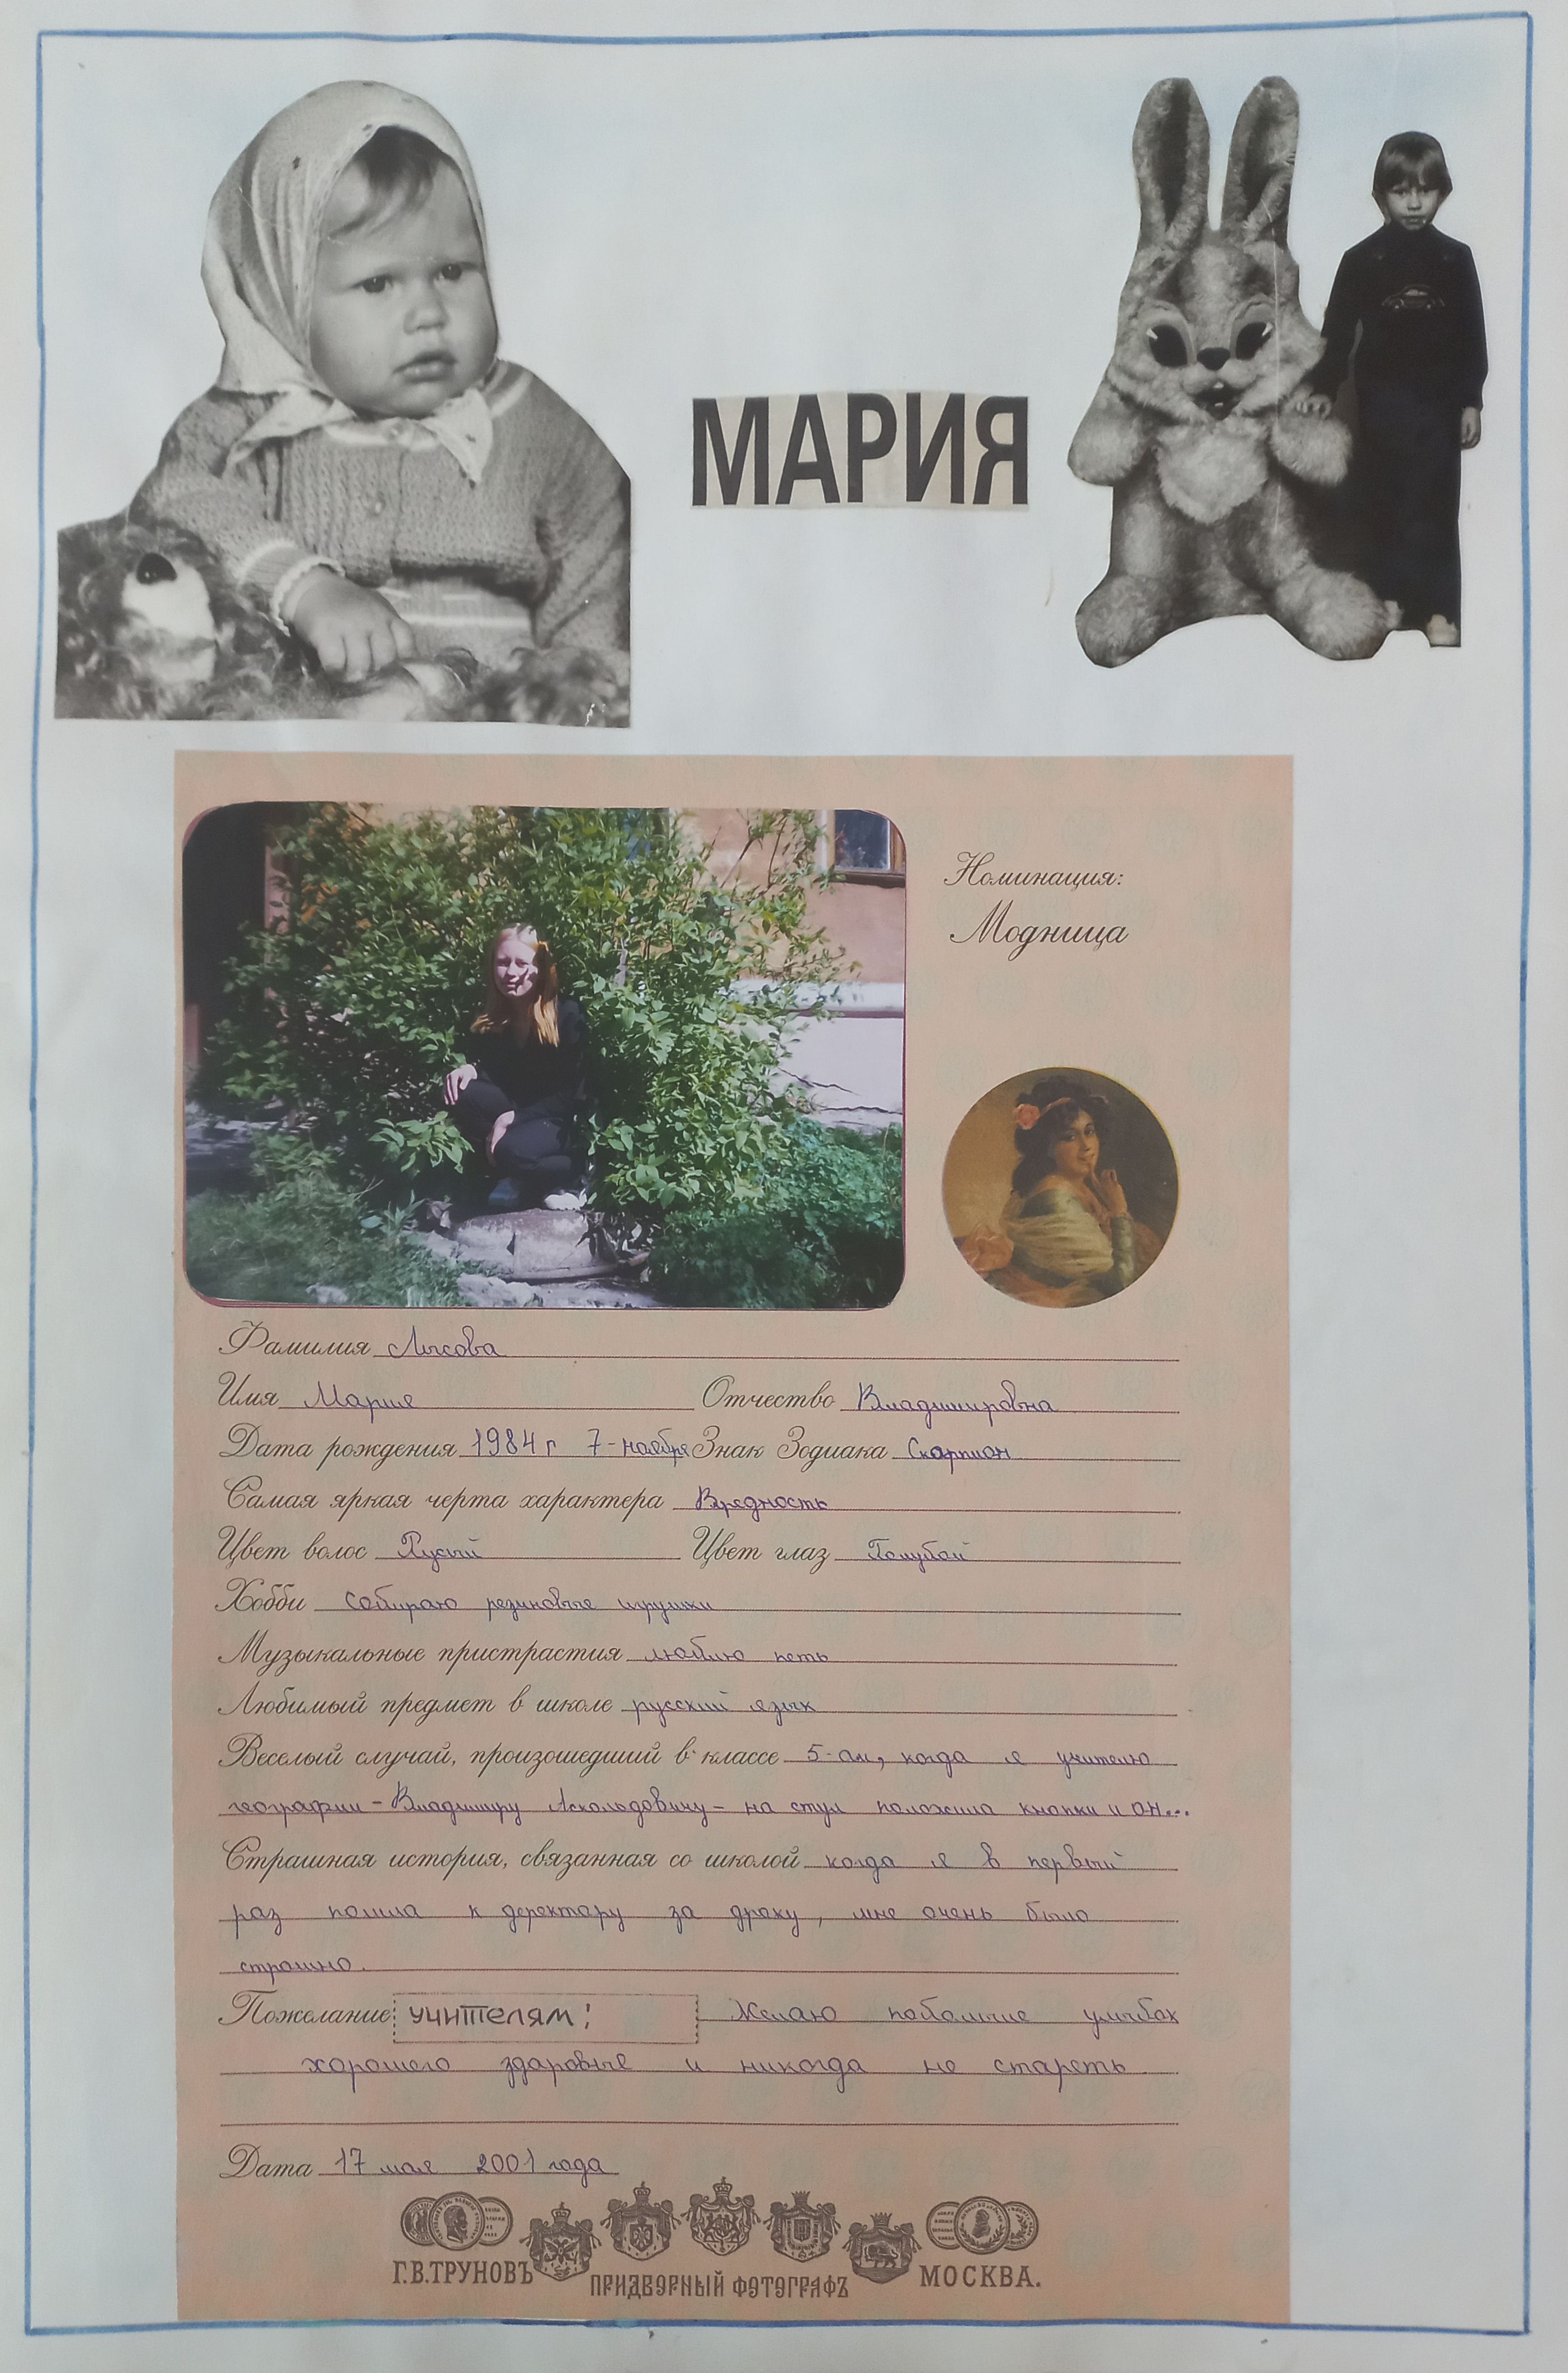 МАРИЯ
Номинация:
Модница
Фамилия Лысова
Имя Мария Отчество Владимировна
Дата рождения 1984 г 7-ноября Знак Зодиака Скорпион
Самая яркая черта характера Вредность
Цвет волос Русый Цвет глаз Голубой
Хобби собираю резиновые игрушки
Музыкальные пристрастия люблю петь
Любимый предмет в школе русский язык
Веселый случай, произошедший в классе 5-ом, когда я учителю
географии - Владимиру Аскольдовичу - на стул положила кнопки и он...
Страшная история, связанная со школой когда я в первый
раз пошла к деректару за драку, мне очень было
страшно.
Пожелание учителям: Желаю побольше улыбок
хорошего здаровья и никогда не стареть
Дата 17 мая 2001 года
Г.В.ТРУНОВЪ ПРИДВОРНЫЙ ФОТОГРАФЪ МОСКВА.